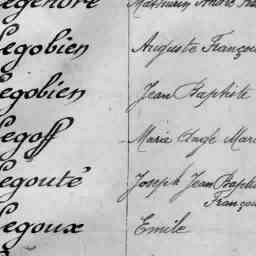 Legendre Mathurin André
Legobien Auguste François
Legobien Jean Baptiste
Legoff Marie Ange Marie
Legouté Joseph Jean Baptiste
François
Legoux Emile